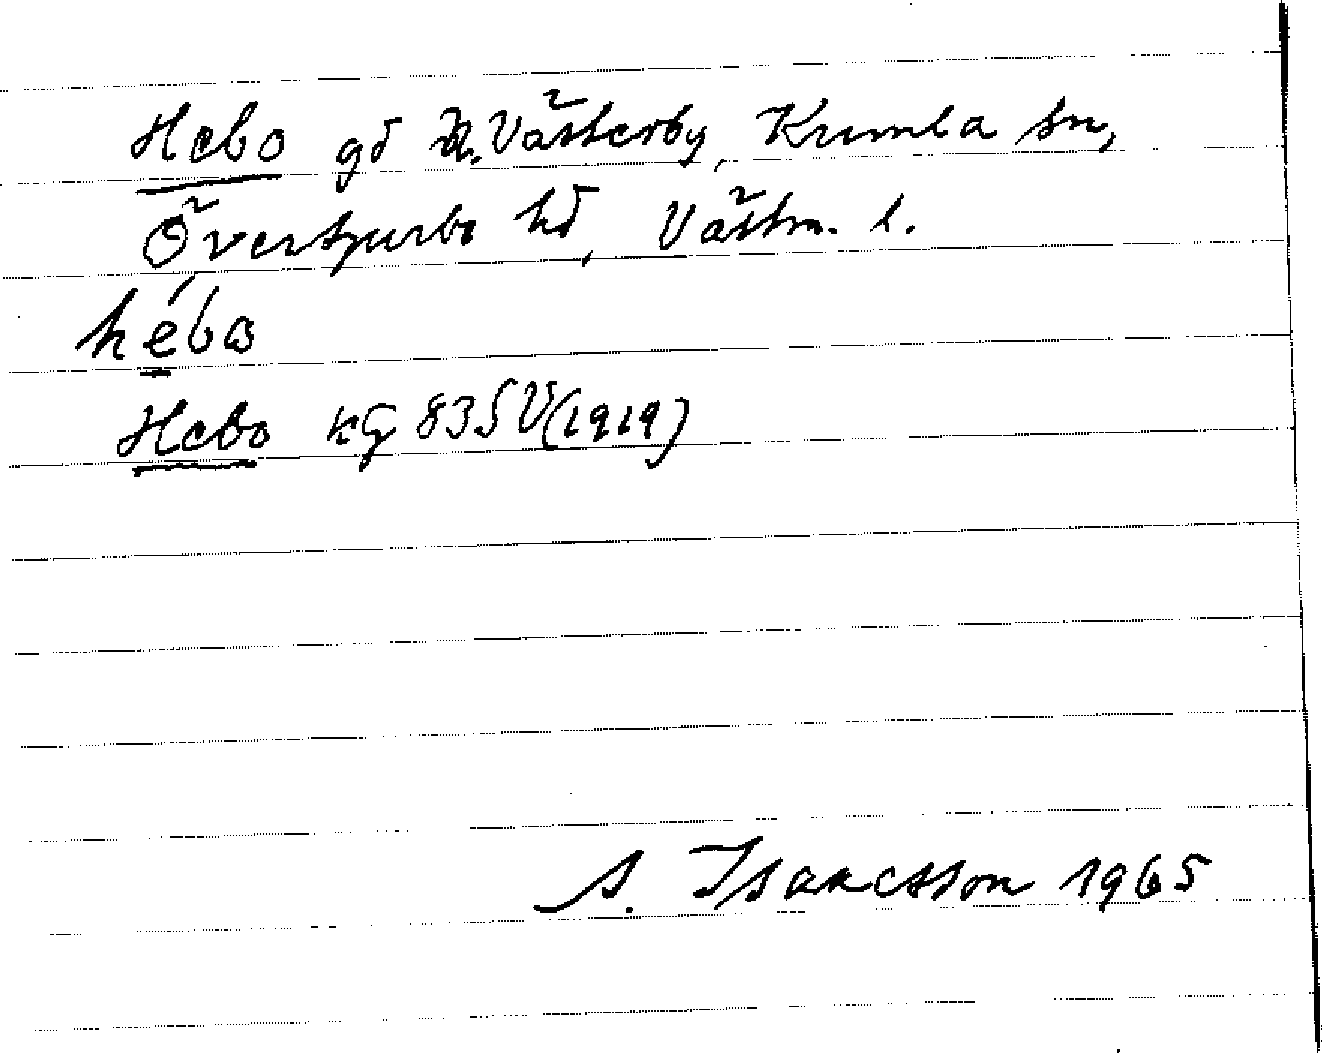 Hebo gd N. Västerby, Kumla sn,
Övertjurbo hd, Västm. l.
hébω
Hebo kG 83SV(1919)
S. Isaacsson 1965